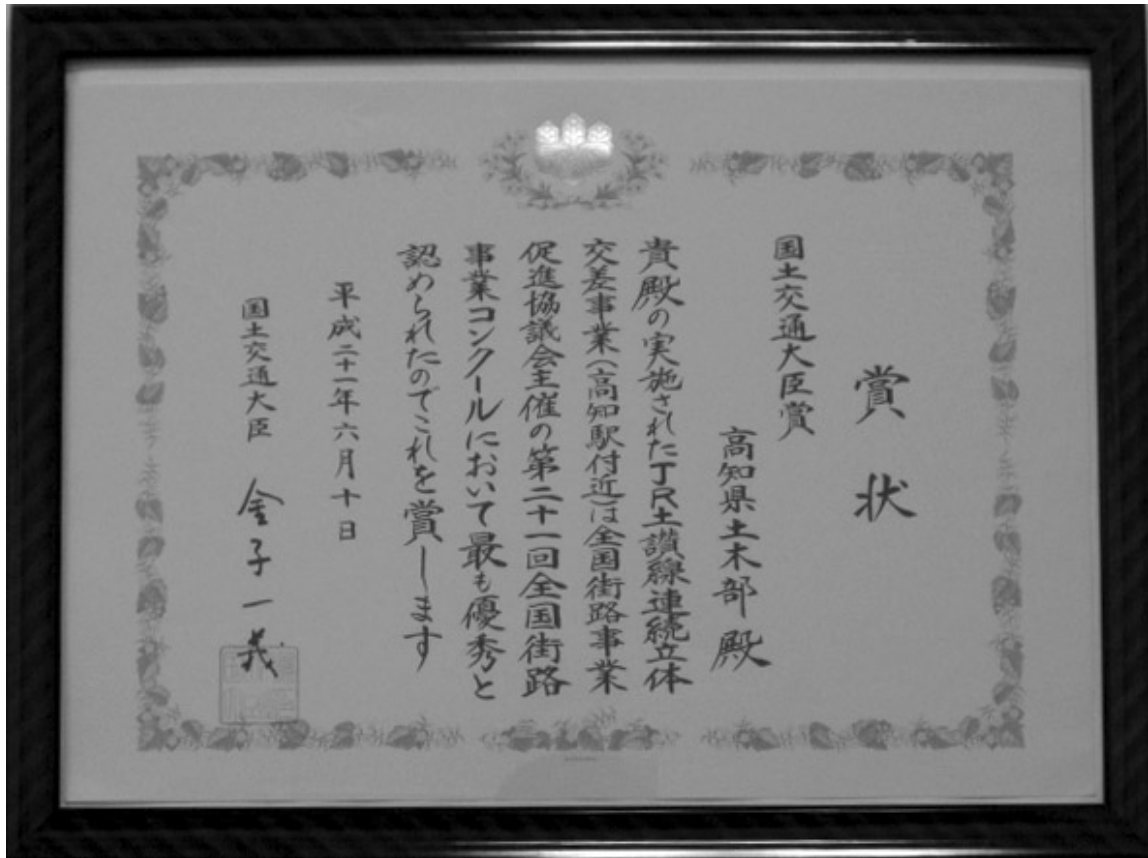 賞状
国土交通大臣賞
高知県土木部殿
貴殿の実施されたJR土讃線連続立体
交差事業(高知駅付近)は全国街路事業
促進協議会主催の第二十一回全国街路
事業コンクールにおいて最も優秀と
認められたのでこれを賞します
平成二十一年六月十日
国土交通大臣 金子一義